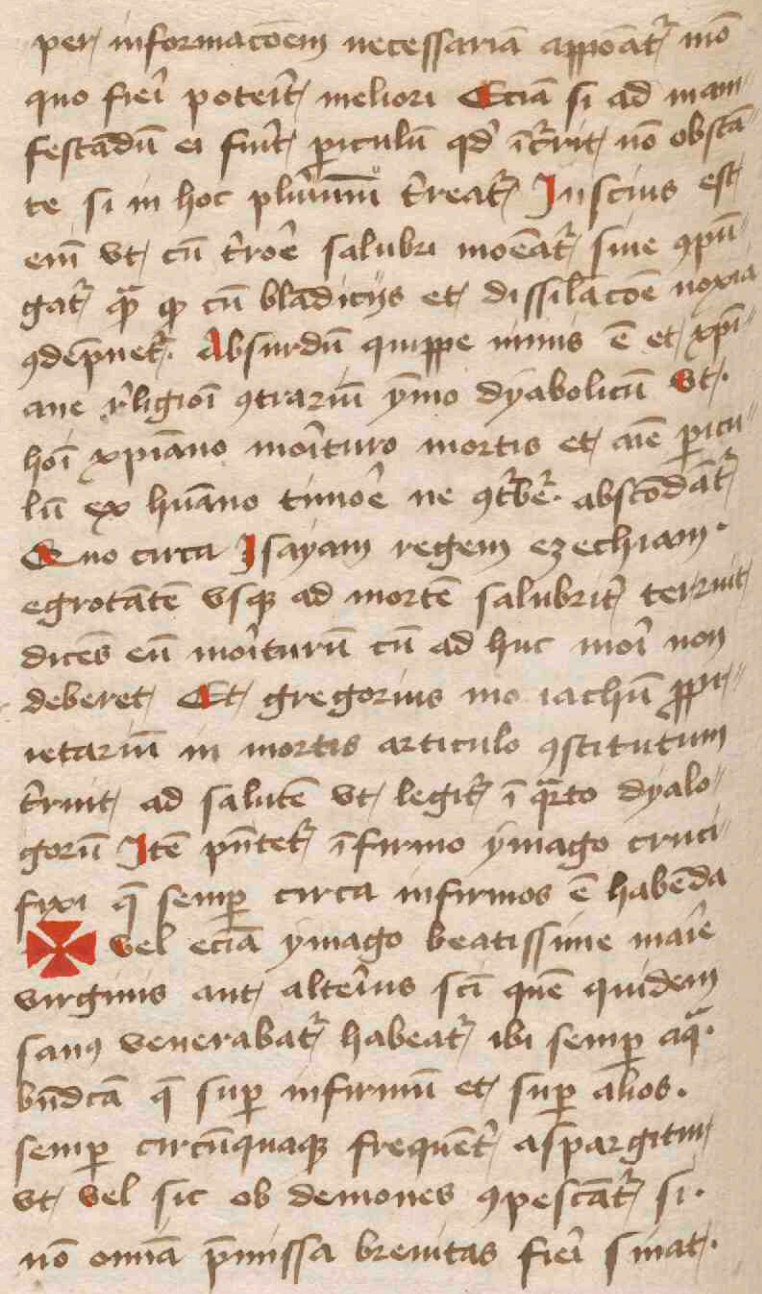 per informacōem necessariā appōat᷑ mō
quo fieī poteīt meliori Eciā si ad mani⸗
festādū ei fuīt ꝑiculū qd̛ īc̄rit nō obstā⸗
te si in hoc plurimū t̄reat᷑ Iustius est
em̄ vt cū t̄roē salubri moēat᷑ siue ꝯpū⸗
gat᷑ qᷓ ꝙ cū blādicijs et dissilacōe noxia
ꝯdēpnet᷑. Absurdū quippe nimis ē et xp̄i⸗
ane r̄ligioī ꝯtrariū ẏmo dyabolicū vt
hoī xpiāno moīturo mortis et aīe ꝑicu⸗
lū ex hūano timoē ne ꝯt̄bet᷑. abscōdāt᷑
Quo circa Isayam regem ezechiam.
egrotātē vsqꝫ ad mortē salubrit᷑ terruit
dicēs eū moīturū cū ad huc moī non
deberet Et gregorius mo iachū ꝓpri⸗
ietariū in mortis articulo ꝯstitutum
t̄ruit ad salutē vt legit᷑ ī qᷓrto dyalo⸗
gorū Itē pn̄tet᷑ īfirmo ymago cruci⸗
fixi q̄ semꝑ circa infirmos ē habēda
vel eciā ymago beatissime maīe
virginis aut alteīus sci̅ quē quidem
sanꝰ venerabat᷑ habeat᷑ ibi semꝑ aqᷓ.
bn̄dcā q̄ suꝑ infirmū et suꝑ alios.
semꝑ circūquaqꝫ frequēt᷑ aspargitur
vt vel sic ob demones ꝯpescāt᷑ si.
nō omīa p̄missa breuitas fieī sinat.